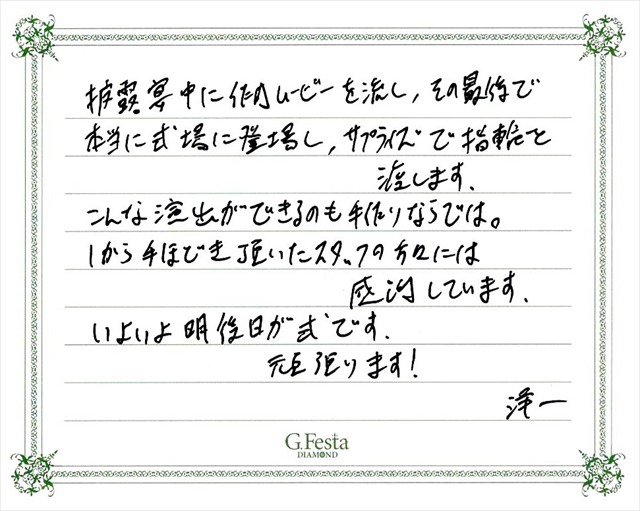 披露宴中に作成ムービーを流し、その最後で
本当に式場に登場し、サプライズで指輪を
渡します。
こんな演出ができるのも手作りならでは。
1から手ほどき頂いたスタッフの方々には
感謝しています。
いよいよ明後日が式です。
頑張ります!
洋一
G.Festa
DIAMOND